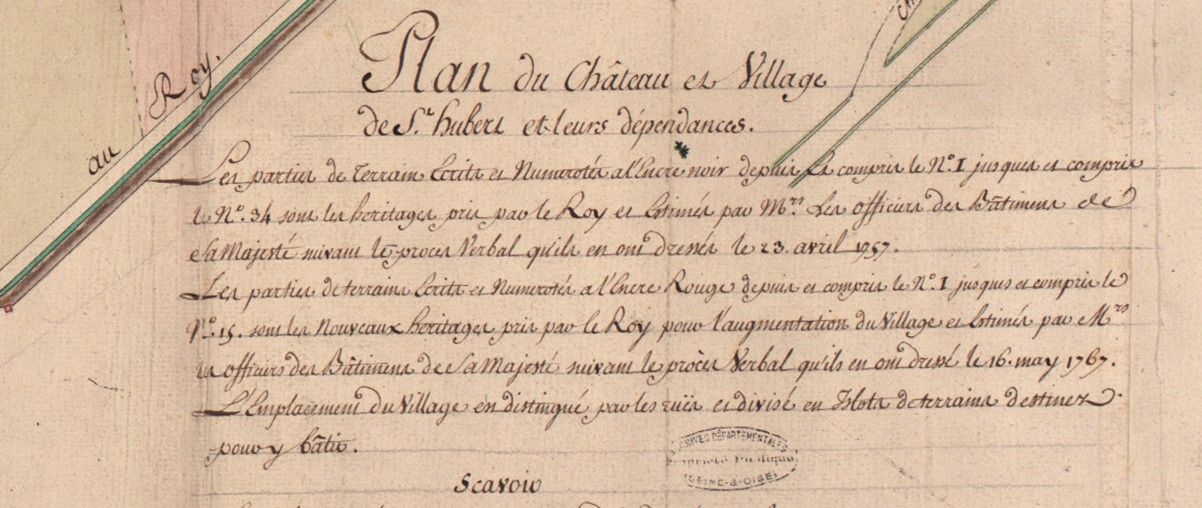 au Roy.
Plan du Château et Village
de S.t hubert et leurs dépendances.
Les parties de terrain Ecrits et Numerotés a l'Encre noir depuis et compris le N.o 1 jusques et compris
le N.o 34 sont les heritages pris par le Roy et Estimés par M.rs Les officiers des Bâtimens de
Sa Majesté suivant le proces Verbal qu'ils en ont dressés le 23. avril 1757.
Les parties de terrains Ecrits et Numerotés a l'Encre Rouge depuis et compris le N.o 1 jusques et compris le
N.o 15. sont les Nouveaux heritages pris par le Roy pour l'augmentation du Village et Estimés par M.rs
les officiers des Bâtimens de Sa Majesté suivant le procès Verbal qu'ils en ont dressé le 16. may 1767.
L'Emplacement du Village en distingué par les ruës et divisé en Islots de terrains destinez
pour y bâtir.
ARCHIVES DÉPARTEMENTALES
PROPRIÉTÉ PUBLIQUE
(SEINE-&-OISE)
Scavoir